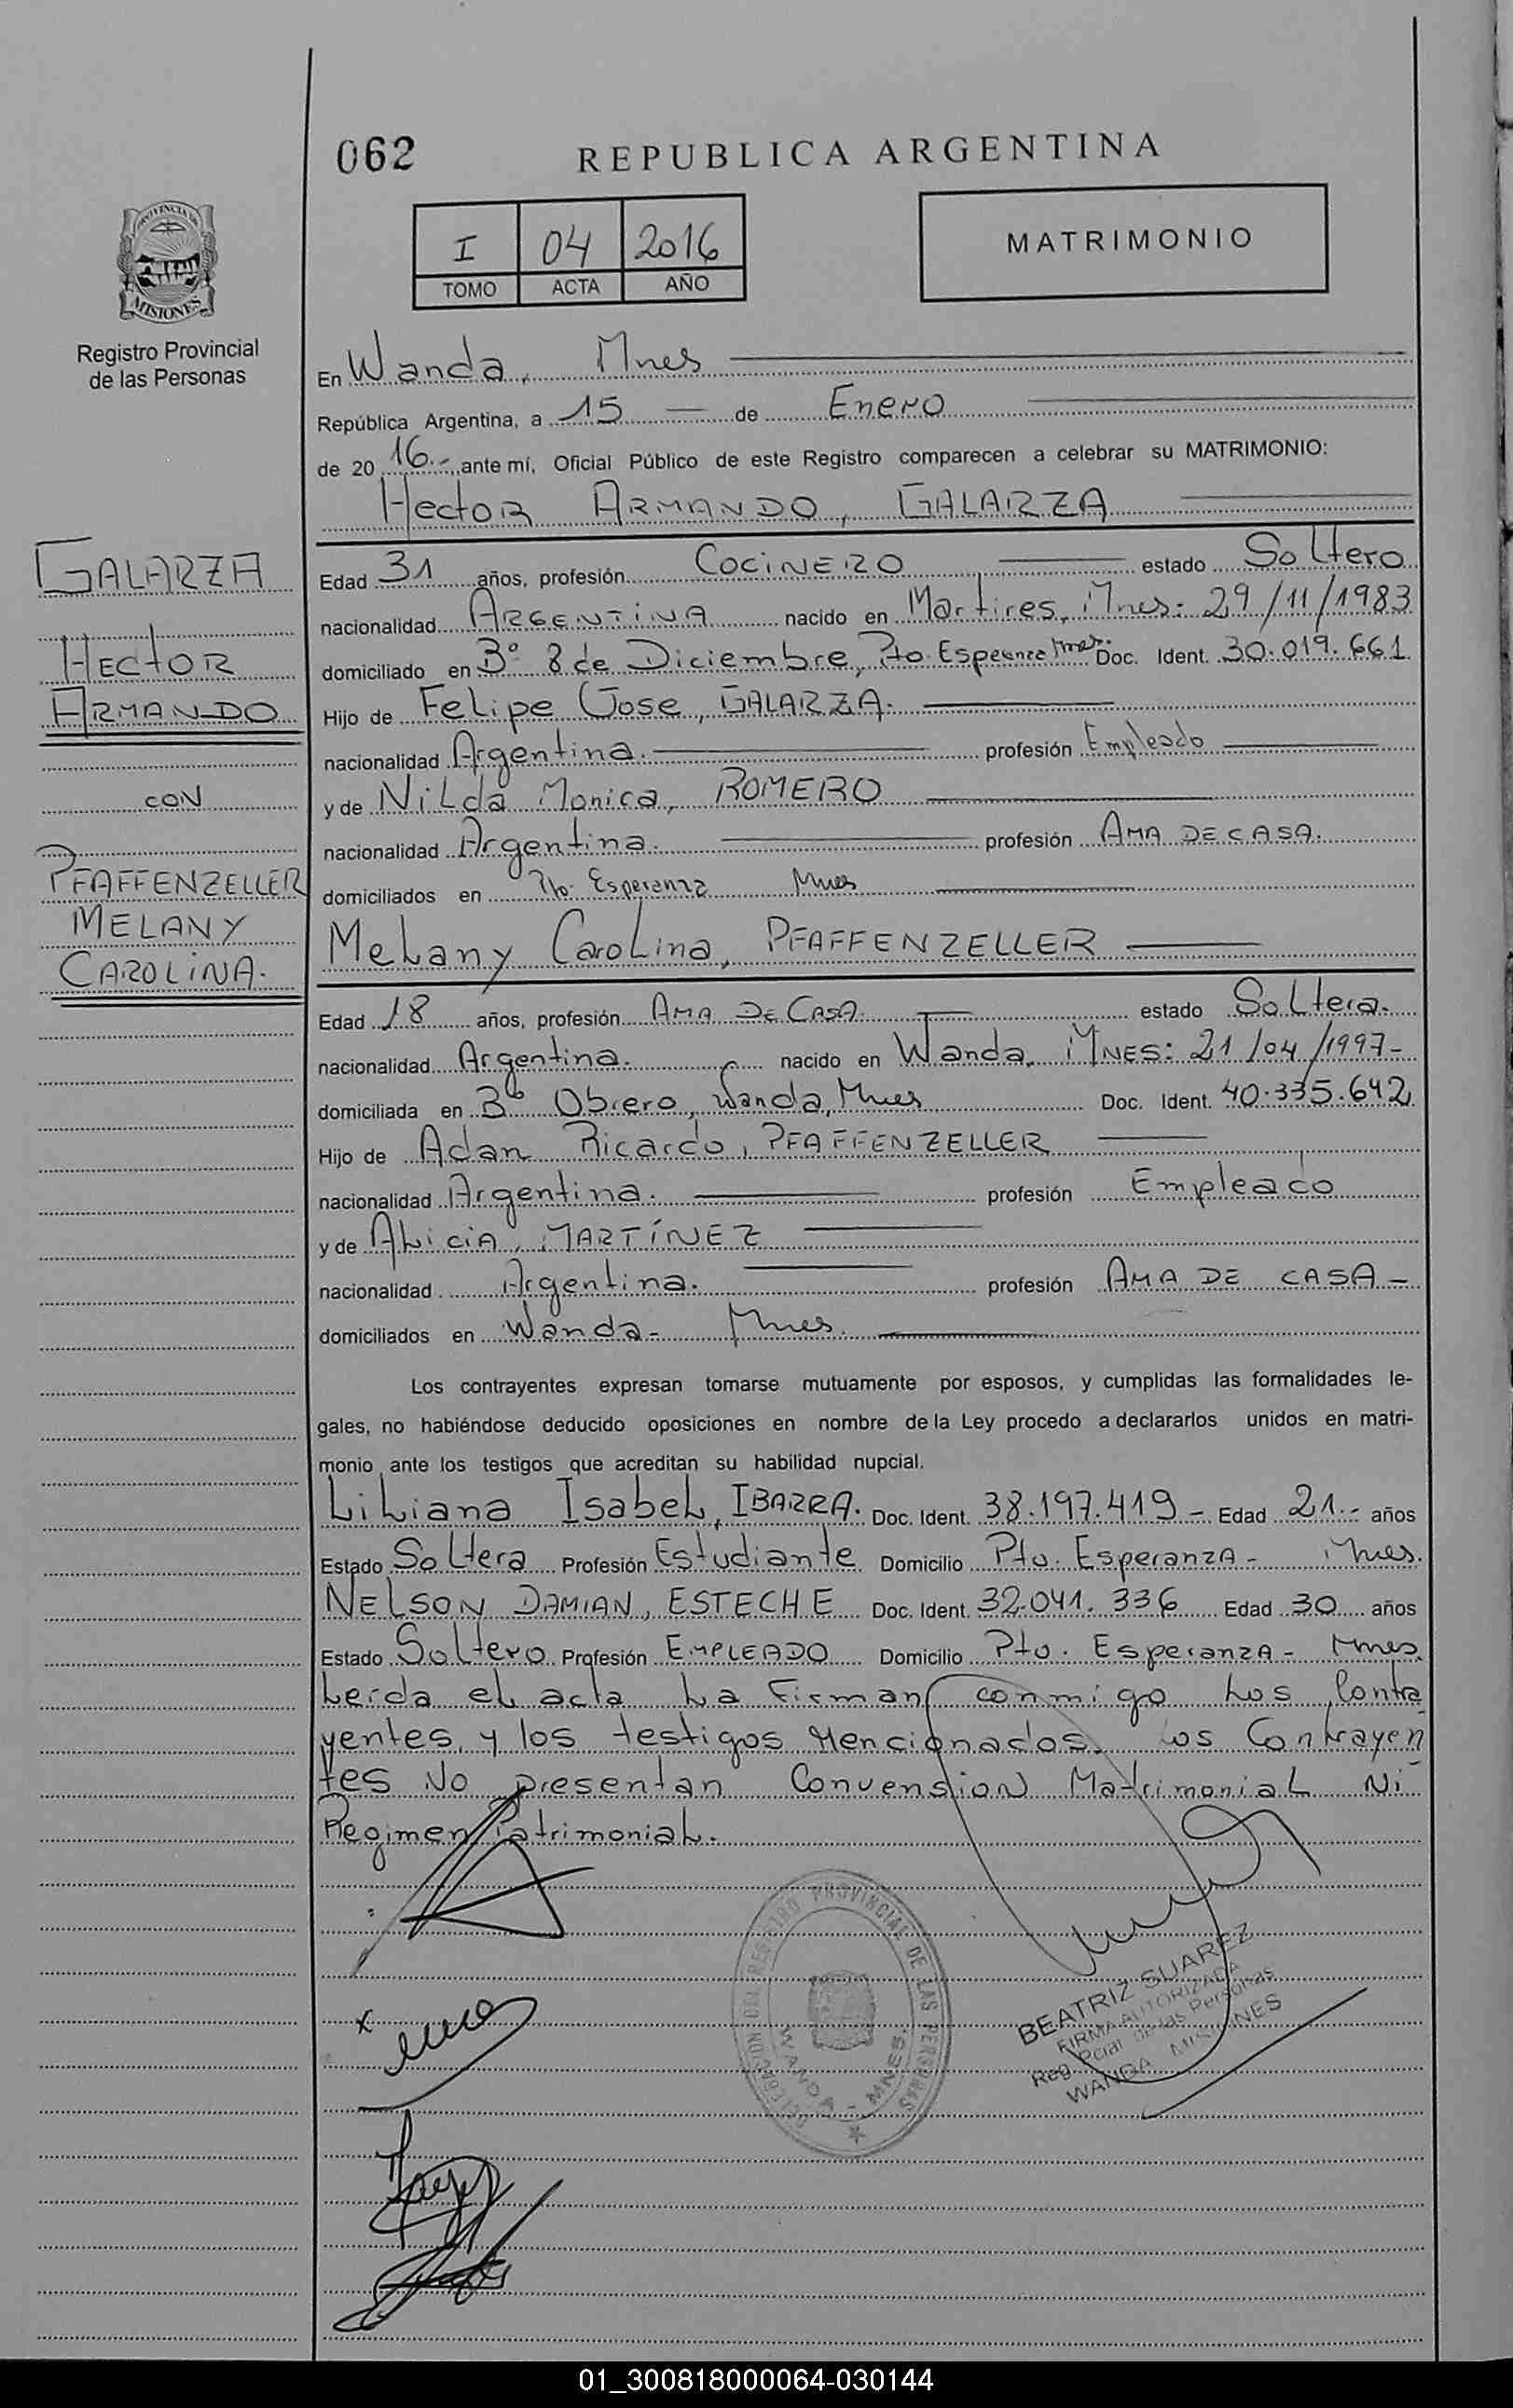 062
REPUBLICA ARGENTINA
I 04 2016
TOMO ACTA AÑO
MATRIMONIO
PROVINCIA DE
MISIONES
Registro Provincial
de las Personas
GALARZA
HECTOR
ARMANDO
CON
PFAFFENZELLER
MELANY
CAROLINA.
En Wanda, Mnes
República Argentina, a 15 — de Enero
de 2016.- ante mí, Oficial Público de este Registro comparecen a celebrar su MATRIMONIO:
Hector ARMANDO, GALARZA
Edad 31 años, profesión COCINERO estado Soltero
nacionalidad ARGENTINA nacido en Martires, Mnes: 29/11/1983
domiciliado en Bº 8 de Diciembre, Pto. Esperanza Mnes. Doc. Ident. 30.019.661
Hijo de Felipe Jose, GALARZA.
nacionalidad Argentina. profesión Empleado
y de Nilda Monica, ROMERO
nacionalidad Argentina. profesión AMA DE CASA.
domiciliados en Pto. Esperanza Mnes
Melany Carolina, PFAFFENZELLER
Edad 18 años, profesión AMA DE CASA. estado Soltera.
nacionalidad Argentina. nacido en Wanda, MNES: 21/04/1997-
domiciliada en Bº Obrero, Wanda, Mnes Doc. Ident. 40.335.642
Hijo de Adan Ricardo, PFAFFENZELLER
nacionalidad Argentina. profesión Empleado
y de Alicia, MARTÍNEZ
nacionalidad Argentina. profesión AMA DE CASA -
domiciliados en Wanda- Mnes.
Los contrayentes expresan tomarse mutuamente por esposos, y cumplidas las formalidades le-
gales, no habiéndose deducido oposiciones en nombre de la Ley procedo a declararlos unidos en matri-
monio ante los testigos que acreditan su habilidad nupcial.
Liliana Isabel, IBARRA. Doc. Ident. 38.197.419 - Edad 21.- años
Estado Soltera Profesión Estudiante Domicilio Pto. Esperanza - Mnes.
NELSON DAMIAN, ESTECHE Doc. Ident. 32.041.336 Edad 30 años
Estado Soltero Profesión EMPLEADO Domicilio Pto. Esperanza - Mnes.
Leída el acta la firman conmigo los Contra
yentes, y los testigos mencionados. Los Contrayen
tes No presentan Convension Matrimonial Ni
Regimen Patrimonial.
DELEGACION DEL REGISTRO PROVINCIAL DE LAS PERSONAS
WANDA - MNES.
BEATRIZ SUAREZ
FIRMA AUTORIZADA
Reg. Pcial de las Personas
WANDA MISIONES
01_300818000064-030144